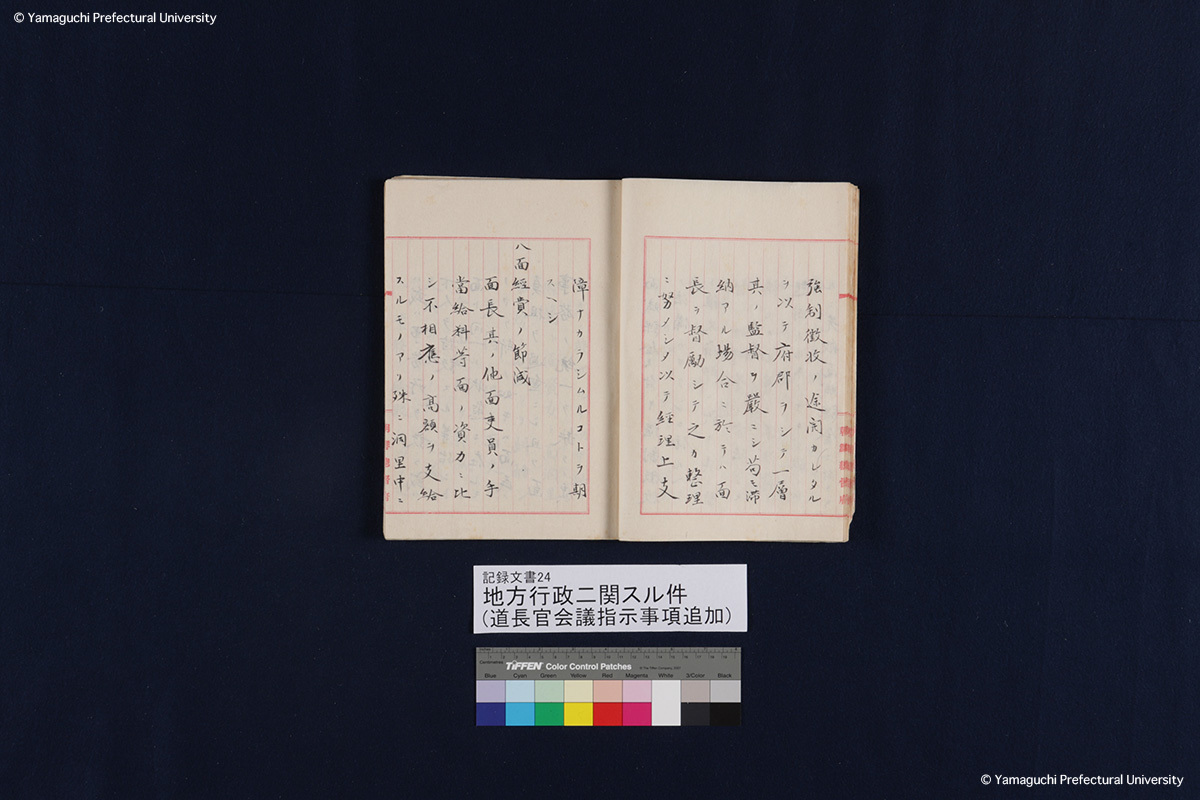 © Yamaguchi Prefectural University
強制徴收ノ途開カレタル
ヲ以テ府郡ヲシテ一層
其ノ監督ヲ嚴ニシ苟モ滞
納アル場合ニ於テハ面
長ヲ督勵シテ之カ整理
ニ努メシメ以テ經理上支
障ナカラシムルコトヲ期
スヘシ
八面經費ノ節減
面長其ノ他面吏員ノ手
當給料等面ノ資力ニ比
シ不相應ノ高額ヲ支給
スルモノアリ殊ニ洞里中ニ
記録文書24
地方行政二関スル件
(道長官会議指示事項追加)
Centimetres
TIFFEN Color Control Patches
© The Tiffen Company, 2000
Blue Cyan Green Yellow Red Magenta White 3/Color Black
© Yamaguchi Prefectural University